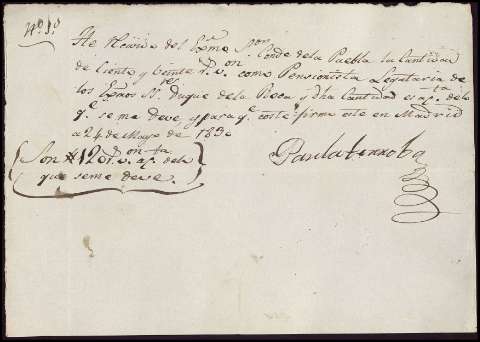 He Recivido del Exmo Sor Conde de la Puebla la Cantidad
de Ciento y Veinte rs. von como Pensionista Legataria de
los Exmos Sres Duque de la Roca y dha Cantidad es a cta de lo
qe se me deve y para qe coste firmo este en Madrid
a 24 de Mayo de 183
Son #120 rs. von a cta de lo
que se me deve.
Paula